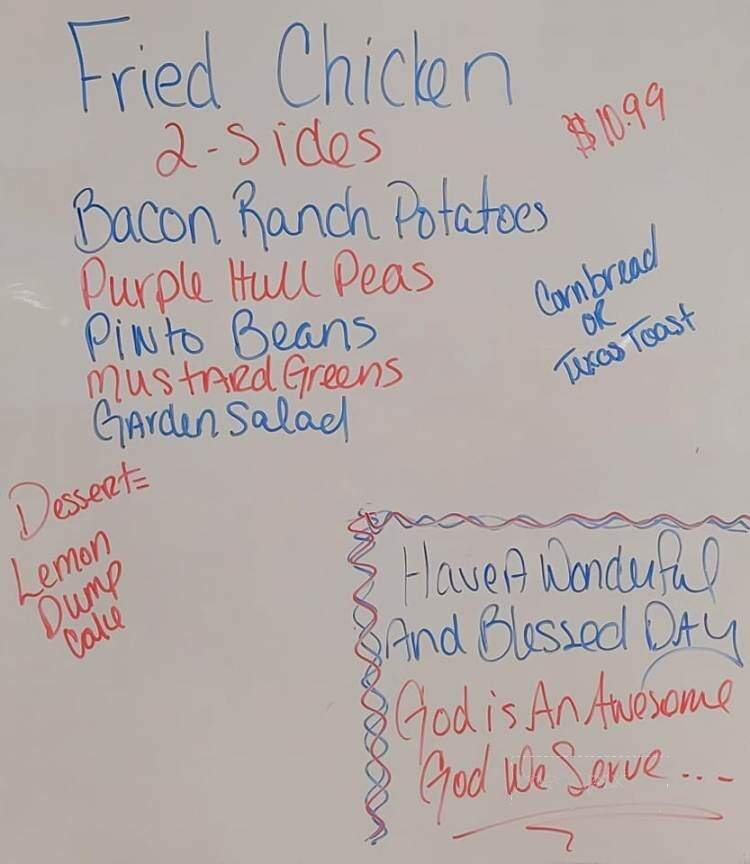 Fried Chicken
2-Sides
$10.99
Bacon Ranch Potatoes
Purple Hull Peas
Pinto Beans
Mustard Greens
Garden Salad
Cornbread
or
Texas Toast
Dessert=
Lemon
Dump
Cake
Have A Wonderful
And Blessed DAY
God is An Awesome
God We Serve...